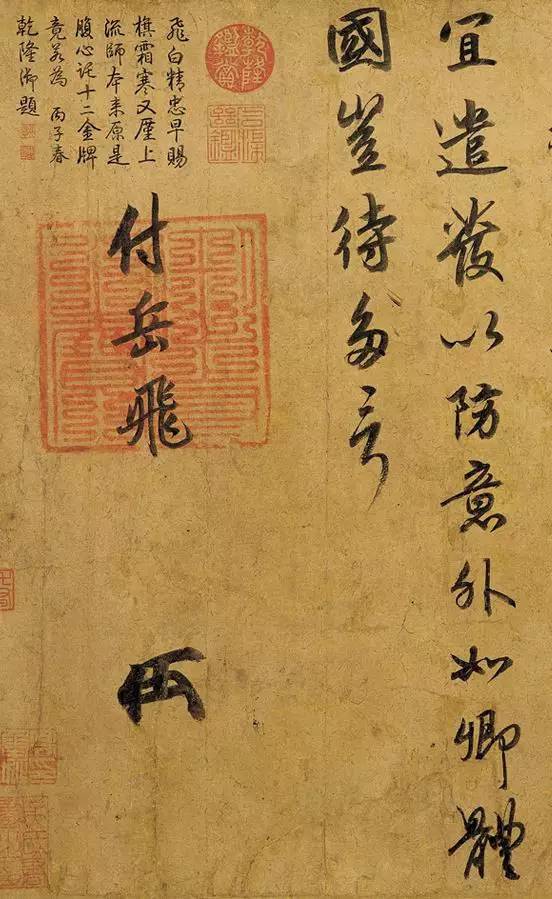 宜遣發以防意外如卿體
國豈待多言
付岳飛
乾隆鑑賞
飛白精忠早賜
旗霜寒又厪上
流師本来原是
腹心託十二金牌
竟若為 丙子春
乾隆御題